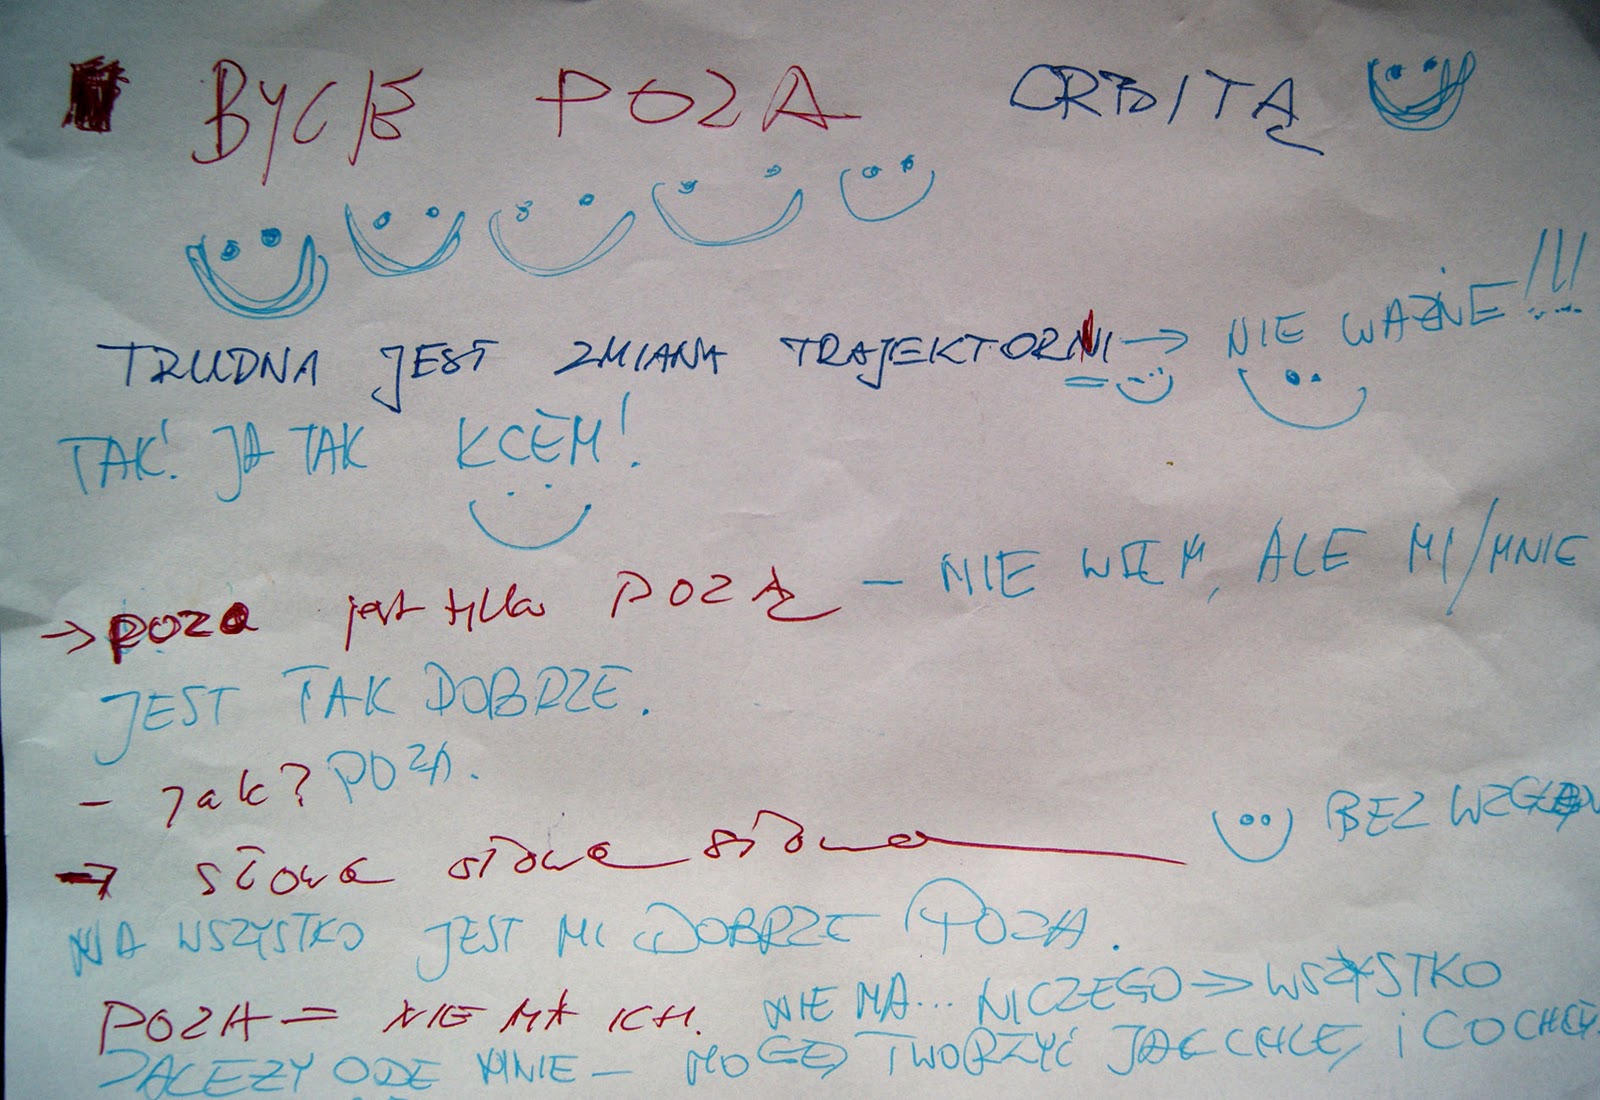 BYCIE POZA ORBITĄ
TRUDNA JEST ZMIANA TRAJEKTORII → NIE WAŻNE!!!
TAK! JA TAK KCEM!
→ poza jest tylko POZĄ – NIE WIEM, ALE MI/MNIE
JEST TAK DOBRZE.
– Jak? POZA.
→ słowa słowa słowa BEZ WZGLĘDU
NA WSZYSTKO JEST MI DOBRZE POZA.
POZA = NIE MA ICH. NIE MA... NICZEGO → WSZYSTKO
ZALEZY ODE MNIE – MOGĘ TWORZYĆ JAK CHCĘ, i CO CHCĘ